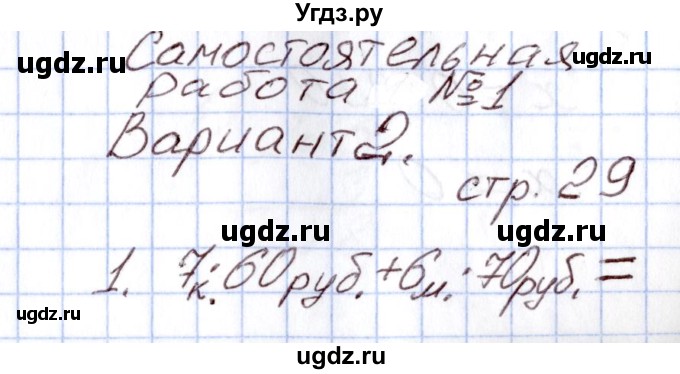 Угдз.ру
Самостоятельная
ugdz.ru ugdz.ru
работа №1
Вариант 2.
ugdz.ru
стр. 29
ugdz.ru ugdz.ru
1. 7к. · 60 руб. + 6м. · 70 руб. =
ugdz.ru
ugdz.ru